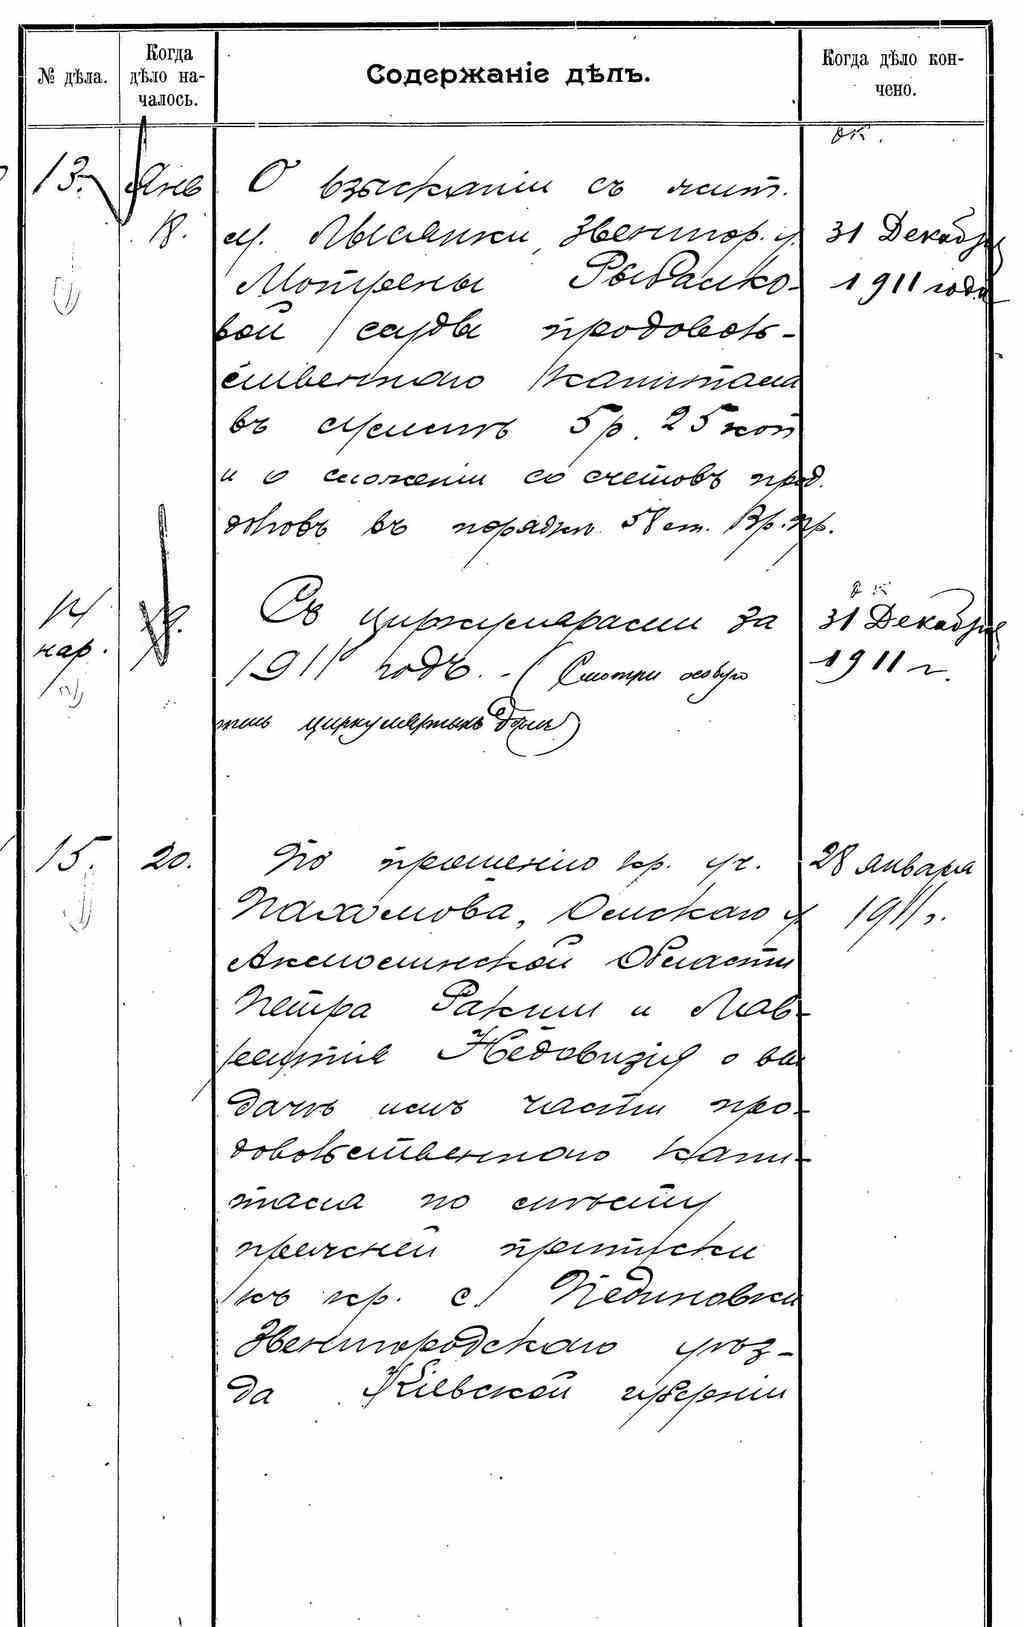 № дѣла.
Когда
дѣло на-
чалось.
Содержаніе дѣлъ.
Когда дѣло кон-
чено.
ок.
13.
Янв
18.
О взысканіи съ жит.
м. Лысянки, Звенигор. у.
Мотрены Рыбалко-
вой ссуды продоволь-
ственнаго капитала
въ суммѣ 5 р. 25 коп
и о сложеніи со счетовъ прод.
долговъ въ порядкѣ 58 ст. Вр. пр.
31 Декабря
1911 года
14
нар.
Съ циркулярами за
1911 годъ. - (Смотри особую
циркулярныхъ дѣлъ)
ок
31 Декабря
1911 г.
15.
20.
По прошенію кр. уч.
Пахомова, Омскаго у.
Акмолинской Области
Петра Ракши и Лав-
рентія о вы
дачѣ имъ части про-
довольственнаго капи-
тала по мѣсту
прежней приписки
къ кр. с. Пединовки
Звенигородскаго уѣз-
да Кіевской губерніи
28 января
1911 г.